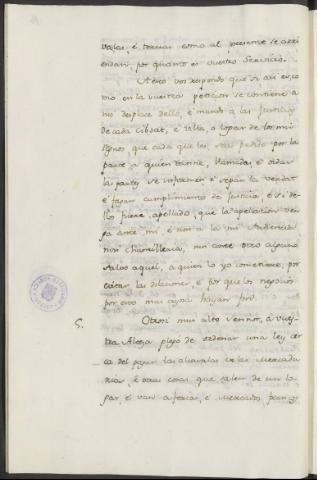 dadas, é tercias como al presente se arri
endan, por quanto es vuestro servicio.
A esto vos respondo que si asi es, co
mo en la vuestra peticion se contiene a
mi desplace dello, é mando a las justicias
de cada cibdat, é villa, o logar de los mis
regnos que cada que les sea pedido por la
parte a quien tanne, llamadas é oidas
las partes se informen é sepan la verdat
é fagan cumplimiento de justicia, é si de
llos fuere apellado, que la apelacion ven
ga ante mi, é non a la mi Audiencia
nin Chancilleria, nin ante otro alguno
salvo aquel, a quien lo yo cometiere, por
evitar las dilaciones, é por que los negocios
por mas ayna hayan fin.
5. Otrosi mui alto Sennor, á vues
tra Alteza plogo de ordenar una ley cer
ca del pagar las alcavalas de las mercadu
rias, é otras cosas que salen de un lo
gar, é van a ferias, é mercados francos